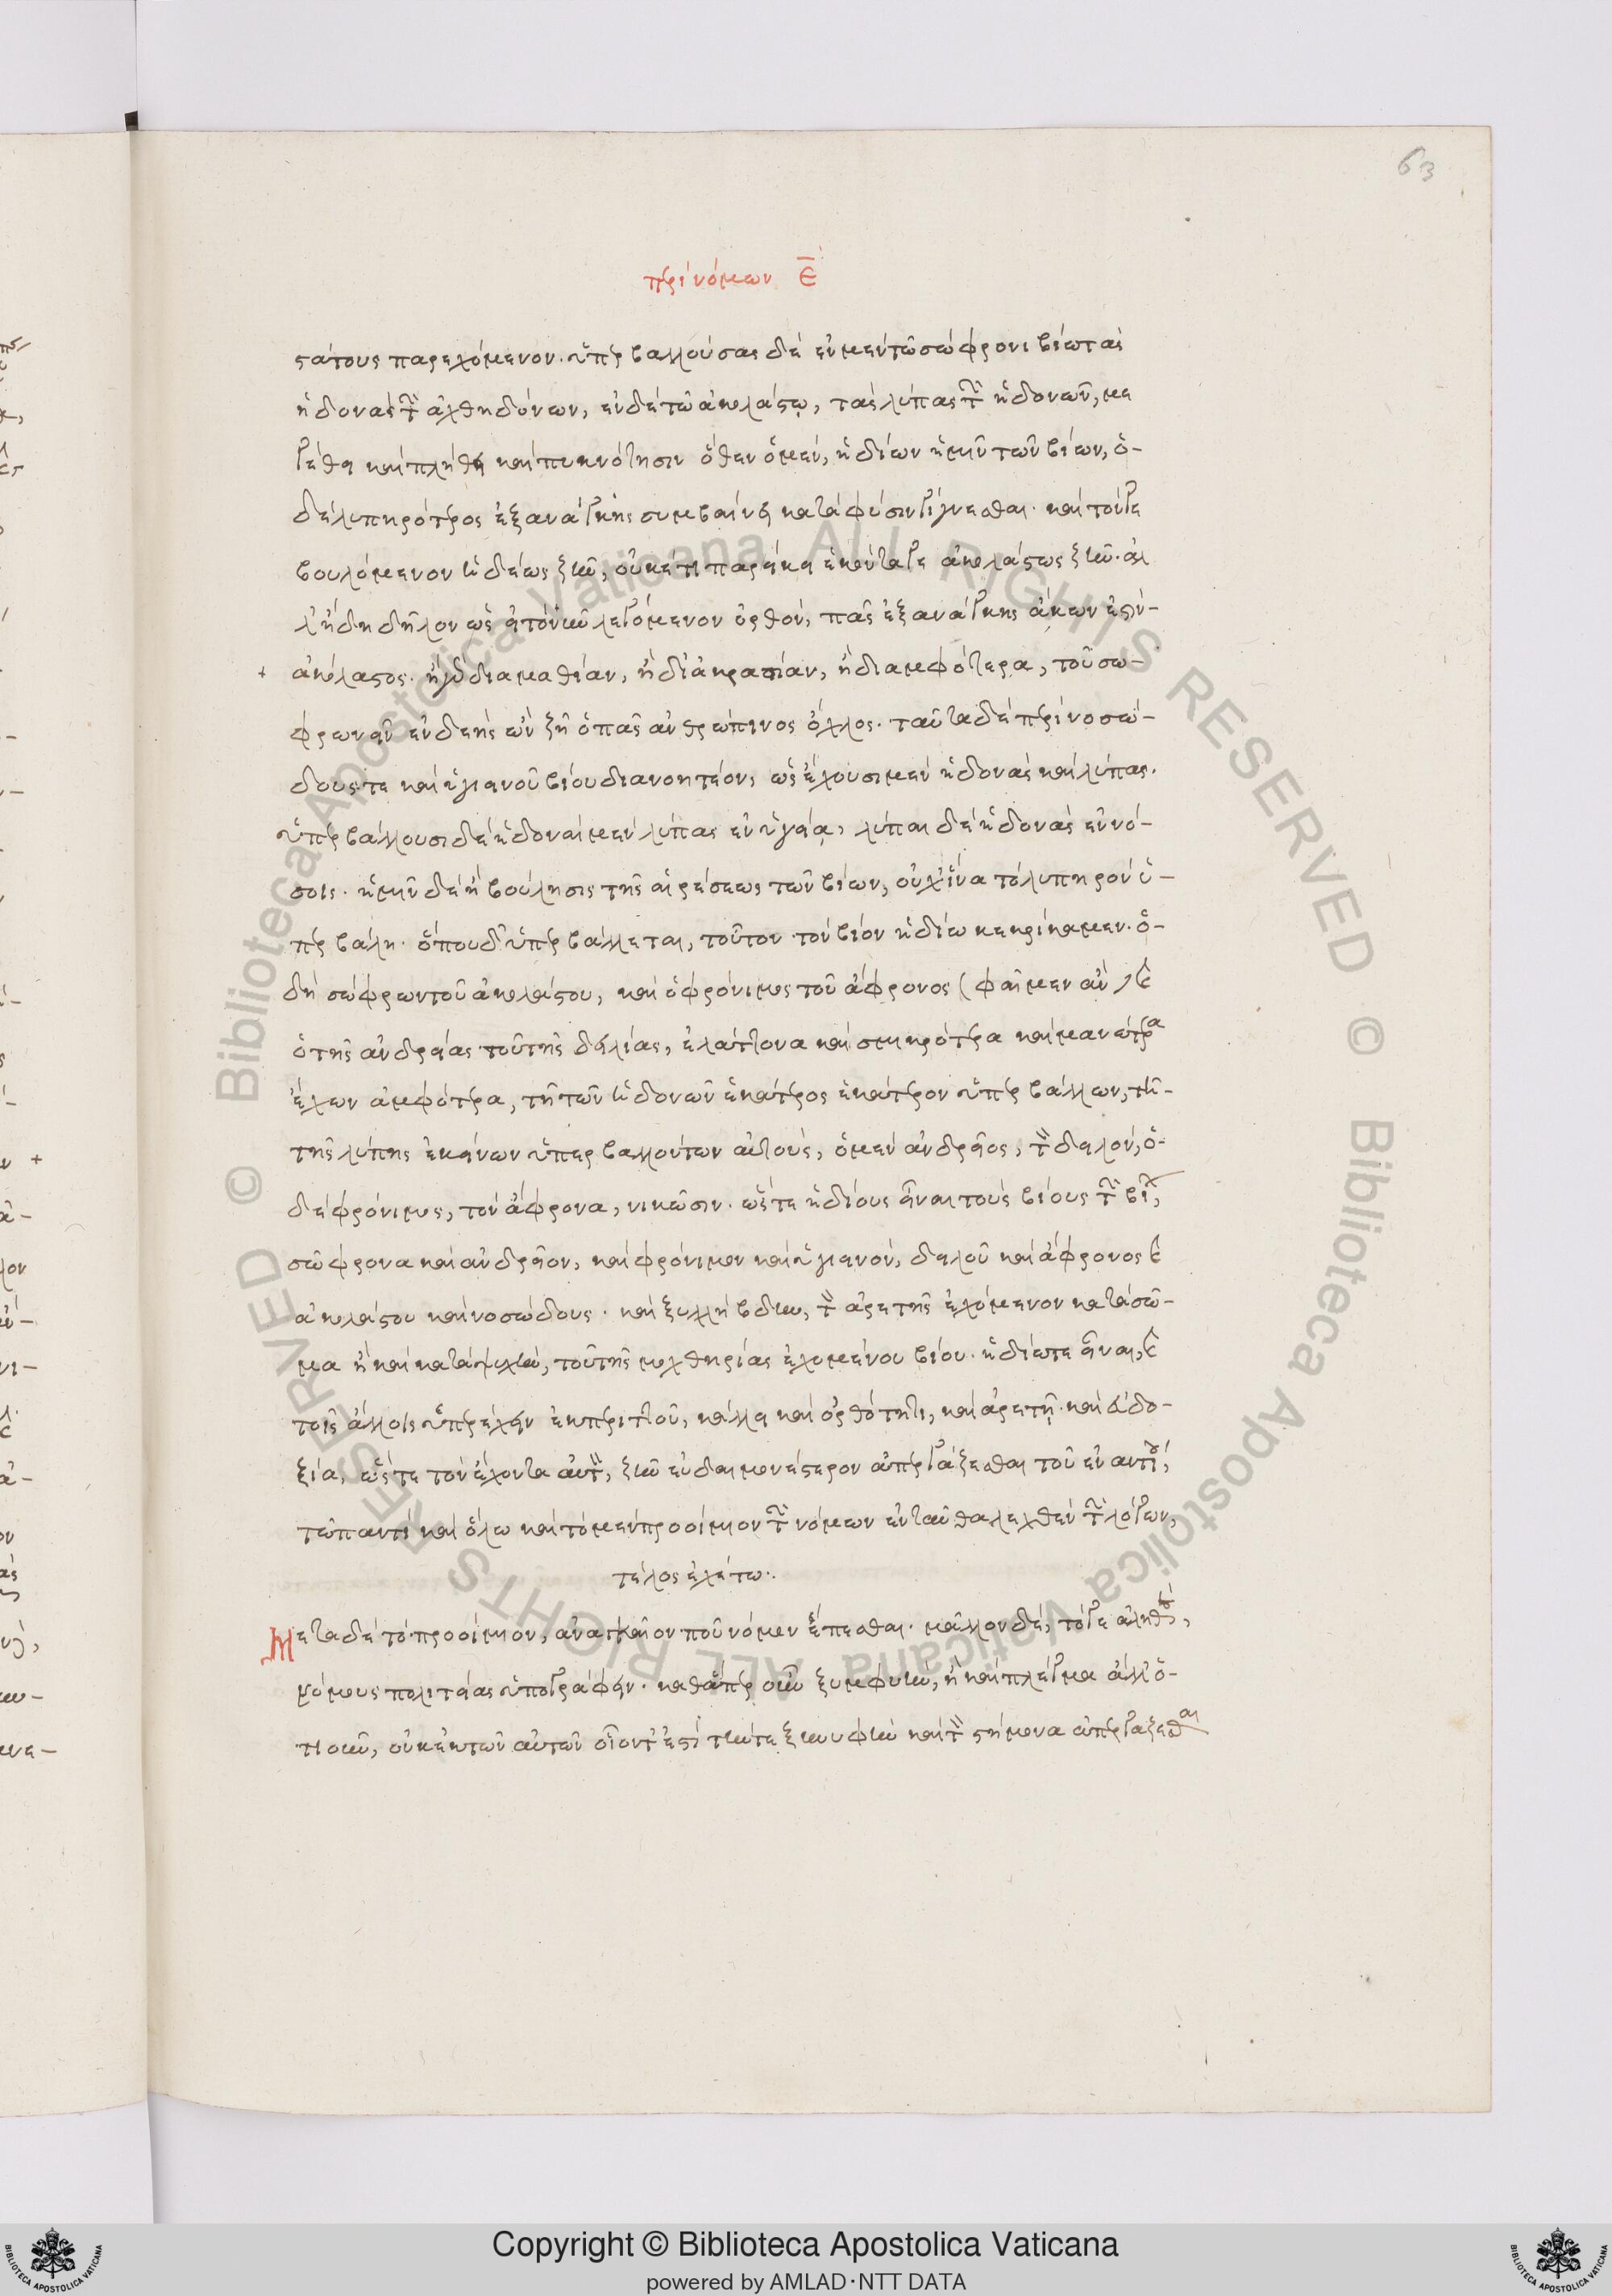 63
περὶ νόμων ε̄
στάτους παρεχόμενον. ὑπερβαλλούσας δὲ ἐν μὲν τῶ σώφρονι βίω τὰς
ἡδονὰς τῶν ἀχθηδόνων, ἐν δὲ τῶ ἀκολάστῳ, τὰς λύπας τῶν ἡδονῶν, με
γέθει καὶ πλήθει καὶ πυκνότησιν ὅθεν ὁ μὲν, ἡδίων ἡμῖν τῶν βίων, ὁ-
δὲ λυπηρότερος ἐξ ἀνάγκης συμβαίνει κατὰ φύσιν γίγνεσθαι. καὶ τόν γε
βουλόμενον ἡδέως ζῆν, οὐκέτι παρείκει ἑκόντα γε ἀκολάστως ζῆν. ἀλ
λ' ἤδη δῆλον ὡς εἰ τὸ νῦν λεγόμενον ὀρθόν, πᾶς ἐξ ἀνάγκης ἄκων ἐστὶν-
+ ἀκόλαστος. ἢ γὰρ δι' ἀμαθίαν, ἢ δι' ἀκρασίαν, ἢ δι' ἀμφότερα, τοῦ σω-
φρονεῖν ἐνδεὴς ὢν ζῇ ὁ πᾶς ἀνθρώπινος ὄχλος. ταῦτα δὲ περὶ νοσώ-
δους τε καὶ ὑγιεινοῦ βίου διανοητέον, ὡς ἔχουσι μὲν ἡδονὰς καὶ λύπας.
ὑπερβάλλουσι δὲ ἡδοναὶ μὲν λύπας ἐν ὑγείᾳ, λῦπαι δὲ ἡδονὰς ἐν νό-
σοις. ἡμῖν δὲ ἡ βούλησις τῆς αἱρέσεως τῶν βίων, οὐχ ἵνα τὸ λυπηρὸν ὑ-
περβάλῃ. ὅπου δ' ὑπερβάλλεται, τοῦτον τὸν βίον ἡδίω κεκρίκαμεν. ὁ-
δὴ σώφρων τοῦ ἀκολάστου, καὶ ὁ φρόνιμος τοῦ ἄφρονος (φαῖμεν ἂν) καὶ
ὁ τῆς ἀνδρείας τοῦ τῆς δειλίας, ἐλάττονα καὶ σμικρότερα καὶ μανώτερα
ἔχων ἀμφότερα, τῇ τῶν ἡδονῶν ἑκάτερος ἑκάτερον ὑπερβάλλων, τῇ-
τῆς λύπης ἐκείνων ὑπερβαλλόντων αὐτοὺς, ὁ μὲν ἀνδρεῖος, τὸν δειλόν, ὁ-
δὲ φρόνιμος, τὸν ἄφρονα, νικῶσιν. ὥστε ἡδίους εἶναι τοὺς βίους τῶν βίων,
σώφρονα καὶ ἀνδρεῖον, καὶ φρόνιμον καὶ ὑγιεινόν, δειλοῦ καὶ ἄφρονος καὶ
ἀκολάστου καὶ νοσώδους. καὶ ξυλλήβδην, τὸν ἀρετῆς ἐχόμενον κατὰ σῶ-
μα ἢ καὶ κατὰ ψυχὴν, τοῦ τῆς μοχθηρίας ἐχομένου βίου. ἡδίω τε εἶναι, καὶ
τοῖς ἄλλοις ὑπερέχειν ἐκ περιττοῦ, κάλλει καὶ ὀρθότητι, καὶ ἀρετῇ. καὶ εὐδο-
ξία, ὥστε τὸν ἔχοντα αὐτὸν, ζῆν εὐδαιμονέστερον ἀπεργάζεσθαι τοῦ ἐναντίου,
τῶ παντὶ καὶ ὅλω καὶ τὸ μὲν προοίμιον τῶν νόμων ἐνταῦθα λεχθὲν τῶν λόγων,
τέλος ἐχέτω.
Μετὰ δὲ τὸ προοίμιον, ἀναγκαῖον που νόμον ἕπεσθαι. μᾶλλον δὲ, τό γε ἀληθὲς,
νόμους πολιτείας ὑπογράφειν. καθάπερ οὖν ξυμφυὴν, ἢ καὶ πλέγμα ἄλλ' ὁ-
τιοῦν, οὐκ ἐκ τῶν αὐτῶν οἷόν τ' ἐστὶ τήν τε ξυνυφὴν καὶ τὸν στήμονα ἀπεργάζεσθαι
Copyright © Biblioteca Apostolica Vaticana
powered by AMLAD·NTT DATA
© Biblioteca Apostolica Vaticana ALL RIGHTS RESERVED © Biblioteca Apostolica Vaticana ALL RIGHTS RESERVED